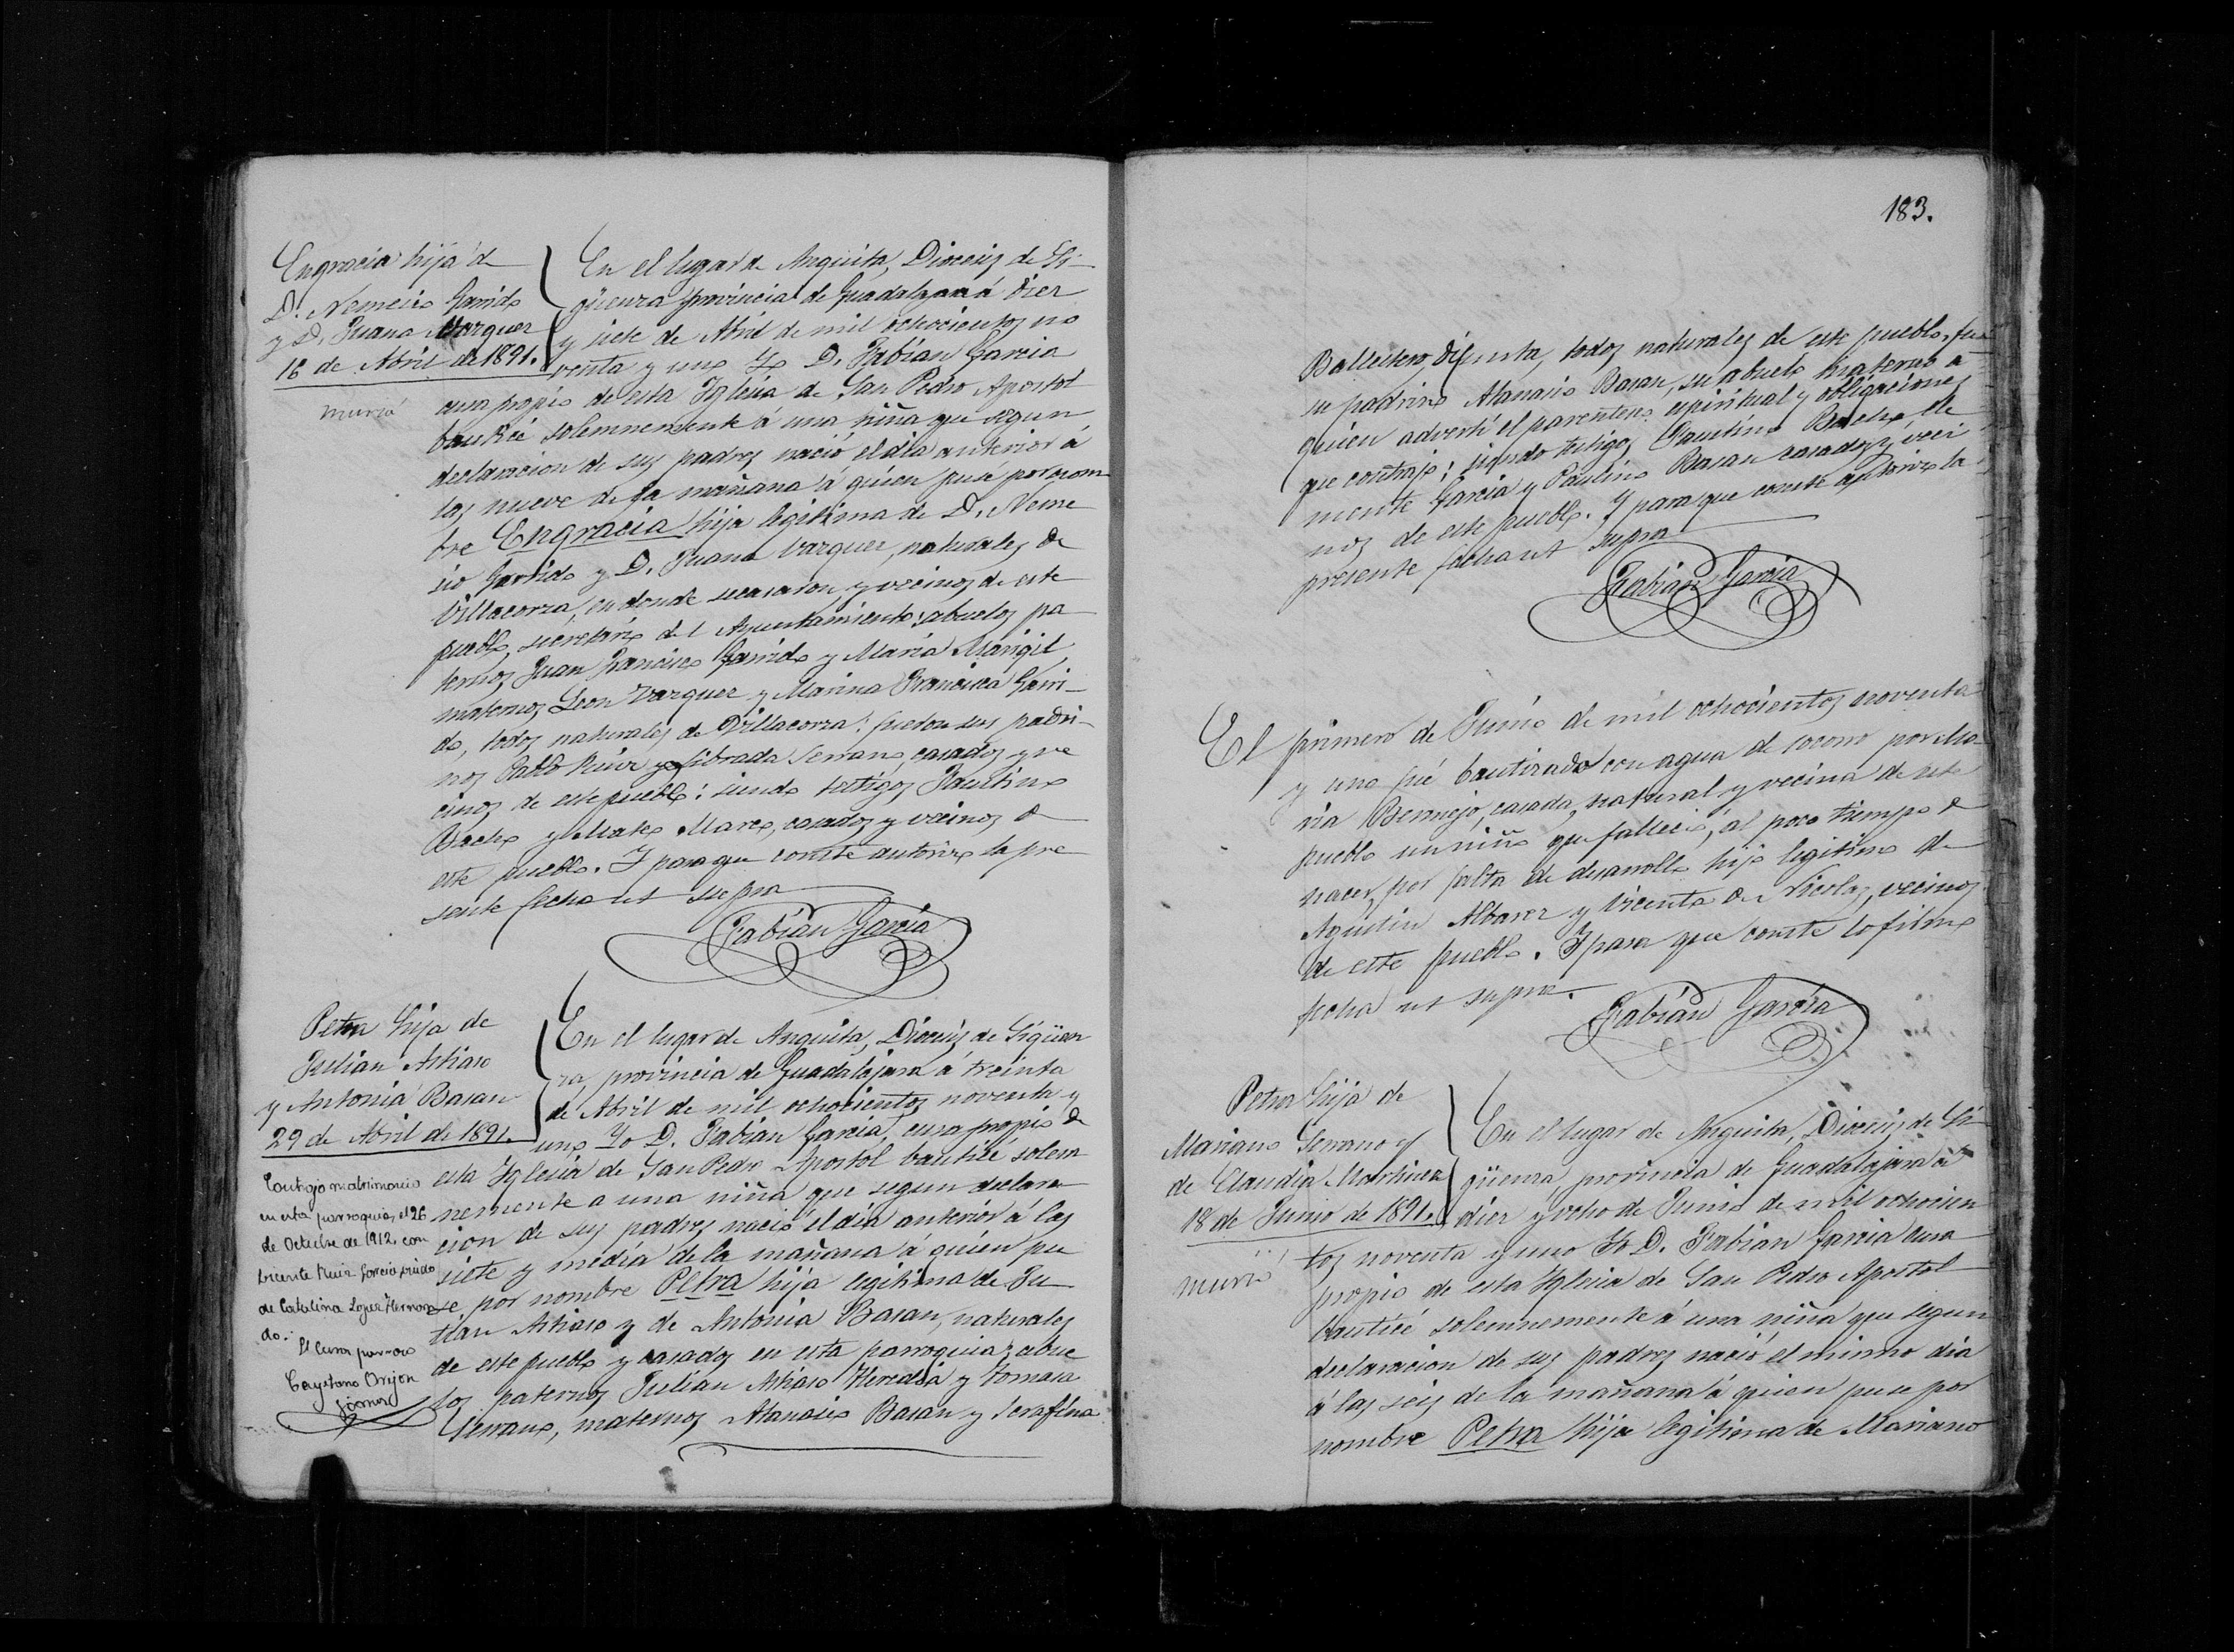 Engracia hija de
D. Nemesio Garrido
y D. Juana Vazquez
16 de Abril de 1891.
murió
En el lugar de Anguita, Diocesis de Si-
güenza provincia de Guadalajara á diez
y siete de Abril de mil ochocientos no
venta y uno Yo D. Fabían Garcia
cura propio de esta Iglesia de San Pedro Apostol
bauticé solemnemente á una niña que segun
declaracion de sus padres nació el dia anterior á
las nueve de la mañana á quien puse por nom
bre Engracia hija legitima de D. Neme
sio Garrido y D. Juana Vazquez, naturales de
Villacorza, en donde se casaron, y vecinos de este
pueblo, secretario del Ayuntamiento: abuelos pa
ternos Juan Francisco Garrido y María Marigil,
maternos Leon Vazquez y Marina Francisca Garri-
do, todos naturales de Villacorza: fueron sus padri-
nos Pablo Ruiz y Librada Serrano, casados y ve
cinos de este pueblo: siendo testigos Paulino
Bacho y Mateo Marco, casados y vecinos de
este pueblo. Y para que conste autorizo la pre
sente fecha ut supra
Fabían García
Petra hija de
Julian Atiaso
y Antonia Basan
29 de Abril de 1891.
Contrajo matrimonio
en esta parroquia, el 26
de Octubre de 1912, con
Vicente Ruiz Garcia, viudo
de Catalina Lopez Hernan
do.
El Cura parroco
Cayetano Orejon
Gomez
En el lugar de Anguita, Diocesis de Sigüen
za, provincia de Guadalajara á treinta
de Abril de mil ochocientos noventa y
uno Yo D. Fabian García, cura propio de
esta Iglesia de San Pedro Apostol bauticé solem
nemente a una niña que segun declara
cion de sus padres nació el día anterior á las
siete y media de la mañana á quien pu
se por nombre Petra hija legitima de Ju
lian Atiaso y de Antonia Basan, naturales
de este pueblo y casados en esta parroquia; abue
los paternos Julían Atiaso Heredia y Tomasa
Serrano, maternos Atanasio Basan y Serafína
183.
Ballestero, difunta, todos naturales de este pueblo, fué
su padrino Atanasio Basan, su abuelo materno á
quien advertí el parentesco espiritual y obligaciones
que contrajo; siendo testigos Faustino Bacho Cle
mente Garcia y Paulino Basan casados, y veci
nos de este pueblo. Y para que conste autorizo la
presente fecha ut supra
Fabían García
El primero de Junio de mil ochocientos noventa
y uno fué bautizado con agua de socorro por Ma
ria Bermejo, casada, natural y vecina de este
pueblo un niño que falleció, al poco tiempo de
nacer, por falta de desarrollo hijo legitimo de
Agustin Albarez y Vicenta de Nicolas, vecinos
de este pueblo. Y para que conste lo firmo
fecha ut supra.
Fabían García
Petra hija de
Mariano Serrano y
de Claudia Martinez
18 de Junio de 1891.
murió
En el lugar de Anguita, Diocesis de Si
güenza provincia de Guadalajara á
diez y ocho de Junio de mil ochocien
tos noventa y uno Yo D. Fabian Garcia cura
propio de esta Iglesia de San Pedro Apostol
bauticé solemnemente á una niña que segun
declaracion de sus padres nació el mismo dia
á las seis de la mañana á quien puse por
nombre Petra hija legitima de Mariano